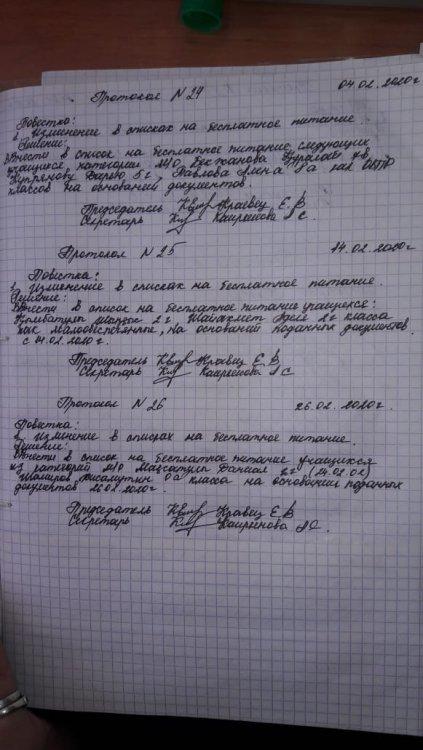 Протокол N 24 04.02.2020г
Повестка:
1. Изменение в списках на бесплатное питание.
Решение:
Внести в список на бесплатное питание следующих
учащихся категории М/О,
5 г, Павлова 0а как
классов на основании документов.
Председатель Кравец Е В
Секретарь Каирженова С.
Протокол N 25 14.02.2020г
Повестка:
1. Изменение в списках на бесплатное питание.
Решение:
Внести в список на бесплатное питание учащихся:
2 г 2г класса
как малообеспеченные, на основании поданных документов
с 14.02.2020г.
Председатель Кравец Е В
Секретарь Каирженова С
Протокол N 26 26.02.2020г.
Повестка:
1. Изменение в списках на бесплатное питание.
Решение:
Внести в список на бесплатное питание учащихся
из категорий М/О Даниал 2г (14.02.02)
0а класса на основании поданных
документов 26.02.2020г.
Председатель Кравец Е В
Секретарь Каирженова С.